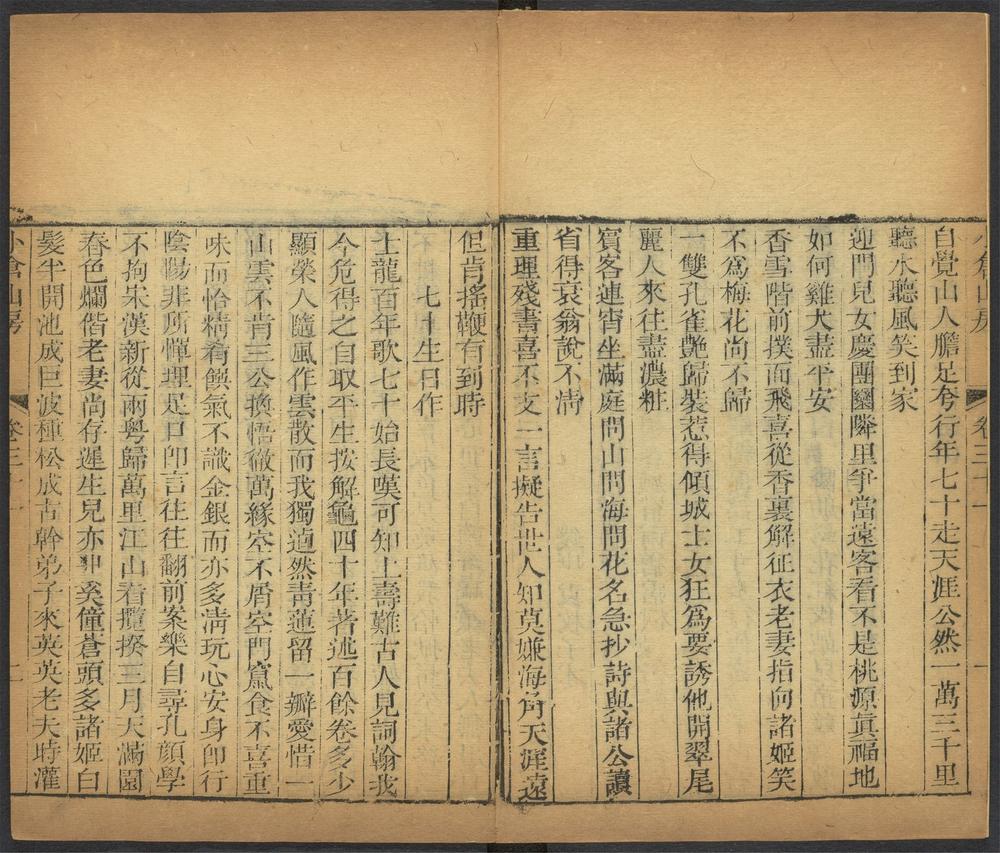 自覺山人膽足夸行年七十走天涯公然一萬三千里
聽水聽風笑到家
迎門兒女慶團圞隣里爭當遠客看不是桃源真福地
如何雞犬盡平安
香雪階前撲面飛喜從香裏解征衣老妻指向諸姬笑
不爲梅花尚不歸
一雙孔雀艷歸裝惹得傾城士女狂爲要誘他開翠尾
麗人來往盡濃粧
賓客連宵坐滿庭問山問海問花名急抄詩與諸公讀
省得衰翁說不清
重理殘書喜不支一言擬告世人知莫嫌海角天涯遠
但肯搖鞭有到時
七十生日作
士龍百年歌七十始長嘆可知上壽難古人見詞翰我
今危得之自取平生按解龜四十年著述百餘卷多少
顯榮人隨風作雲散而我獨逌然靑蓮留一瓣愛惜一
山雲不肯三公換悟徹萬緣空不屑空門竄食不喜重
味而恰精肴饌氣不識金銀而亦多淸玩心安身卽行
陰陽非所憚理足口卽言往往翻前案樂自尋孔顏學
不拘宋漢新從兩粤歸萬里江山看攬揆三月天滿園
春色爛偕老妻尚存遲生兒亦丱奚僮蒼頭多諸姬白
髮半開池成巨波種松成古幹弟子來英英老夫時灌
小倉山房
卷三十一
一
小倉山房
卷三十一
二